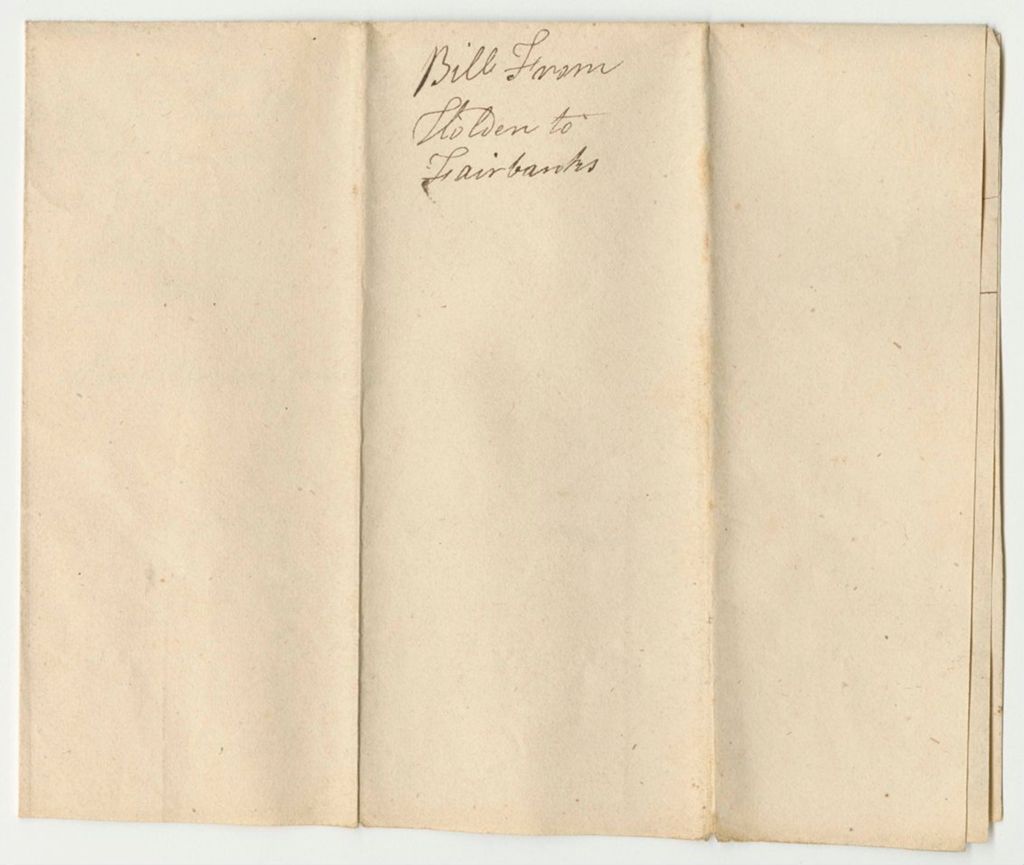 Bill From
Holden to
Fairbanks